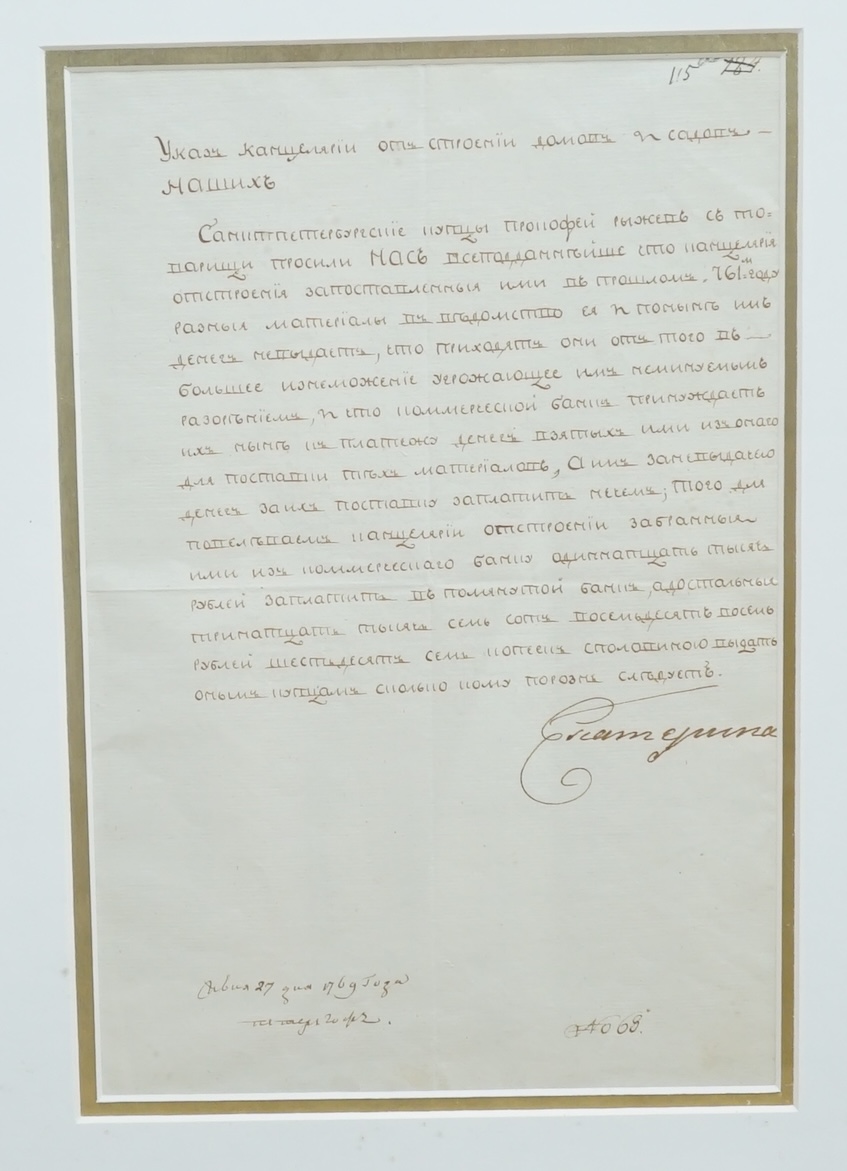 115 184.
Указъ канцелярїи отъ строенїи домовъ и садовъ
НАШИХЪ
Санктпетербургскїе купцы Прокофей рыжевъ съ то=
варищи просили НАСЪ всеподданнѣйше что канцелярїя
отстроенїя запоставленныя ими въ прошломъ. 761=м году
разныя матерїалы въ вѣдомство ея и понынѣ имъ
денегъ невыдаетъ, что приходятъ они отъ того въ
большее изнеможенїе угрожающее имъ неминуемымъ
разоренїемъ, и что коммерческой банкъ принуждаетъ
ихъ нынѣ къ платежу денегъ взятыхъ ими изъ онаго
для поставки тѣхъ матерїаловъ, а имъ заневыдачею
денегъ заихъ поставку заплатить нечемъ; того для
повелѣваемъ канцелярїи отстроенїи забранныя
ими изъ коммерческаго банку одиннатцать тысячь
рублей заплатить въ помянутой банкъ, адостальныя
тринатцать тысячь семь сотъ восемьдесятъ восемь
рублей шестьдесятъ семь копеекъ споловиною выдать
онымъ купцамъ сколько кому порознь слѣдуетъ.
Екатерина
27 дня 1769 Года
№ 68.